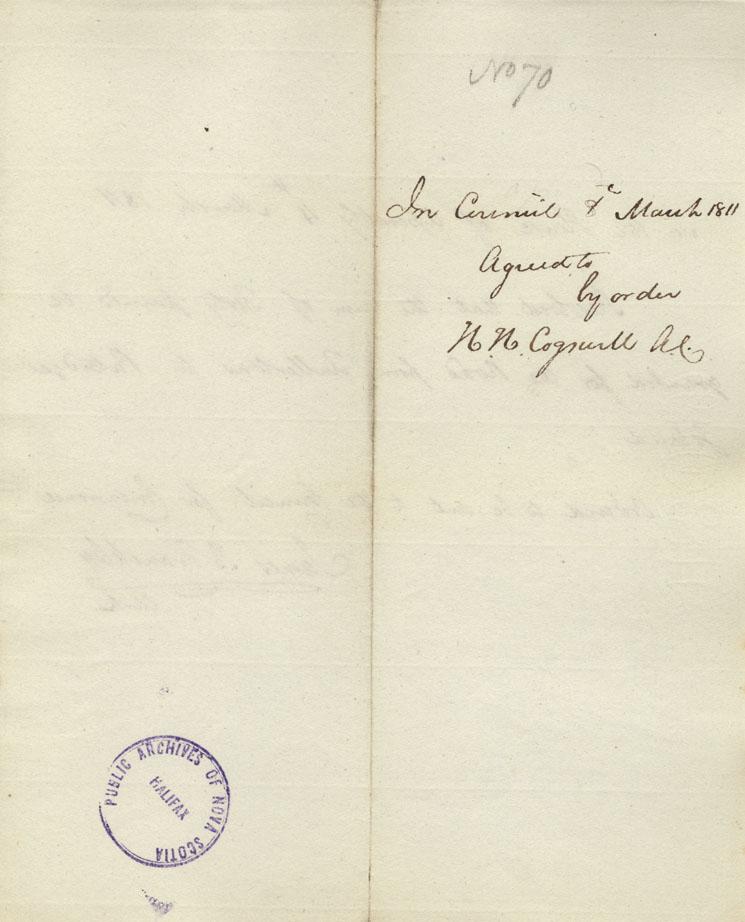 No 70
In Council 8th March 1811
Agreed to
by order
H. H. Cogswell A.C.
PUBLIC ARCHIVES OF NOVA SCOTIA
HALIFAX